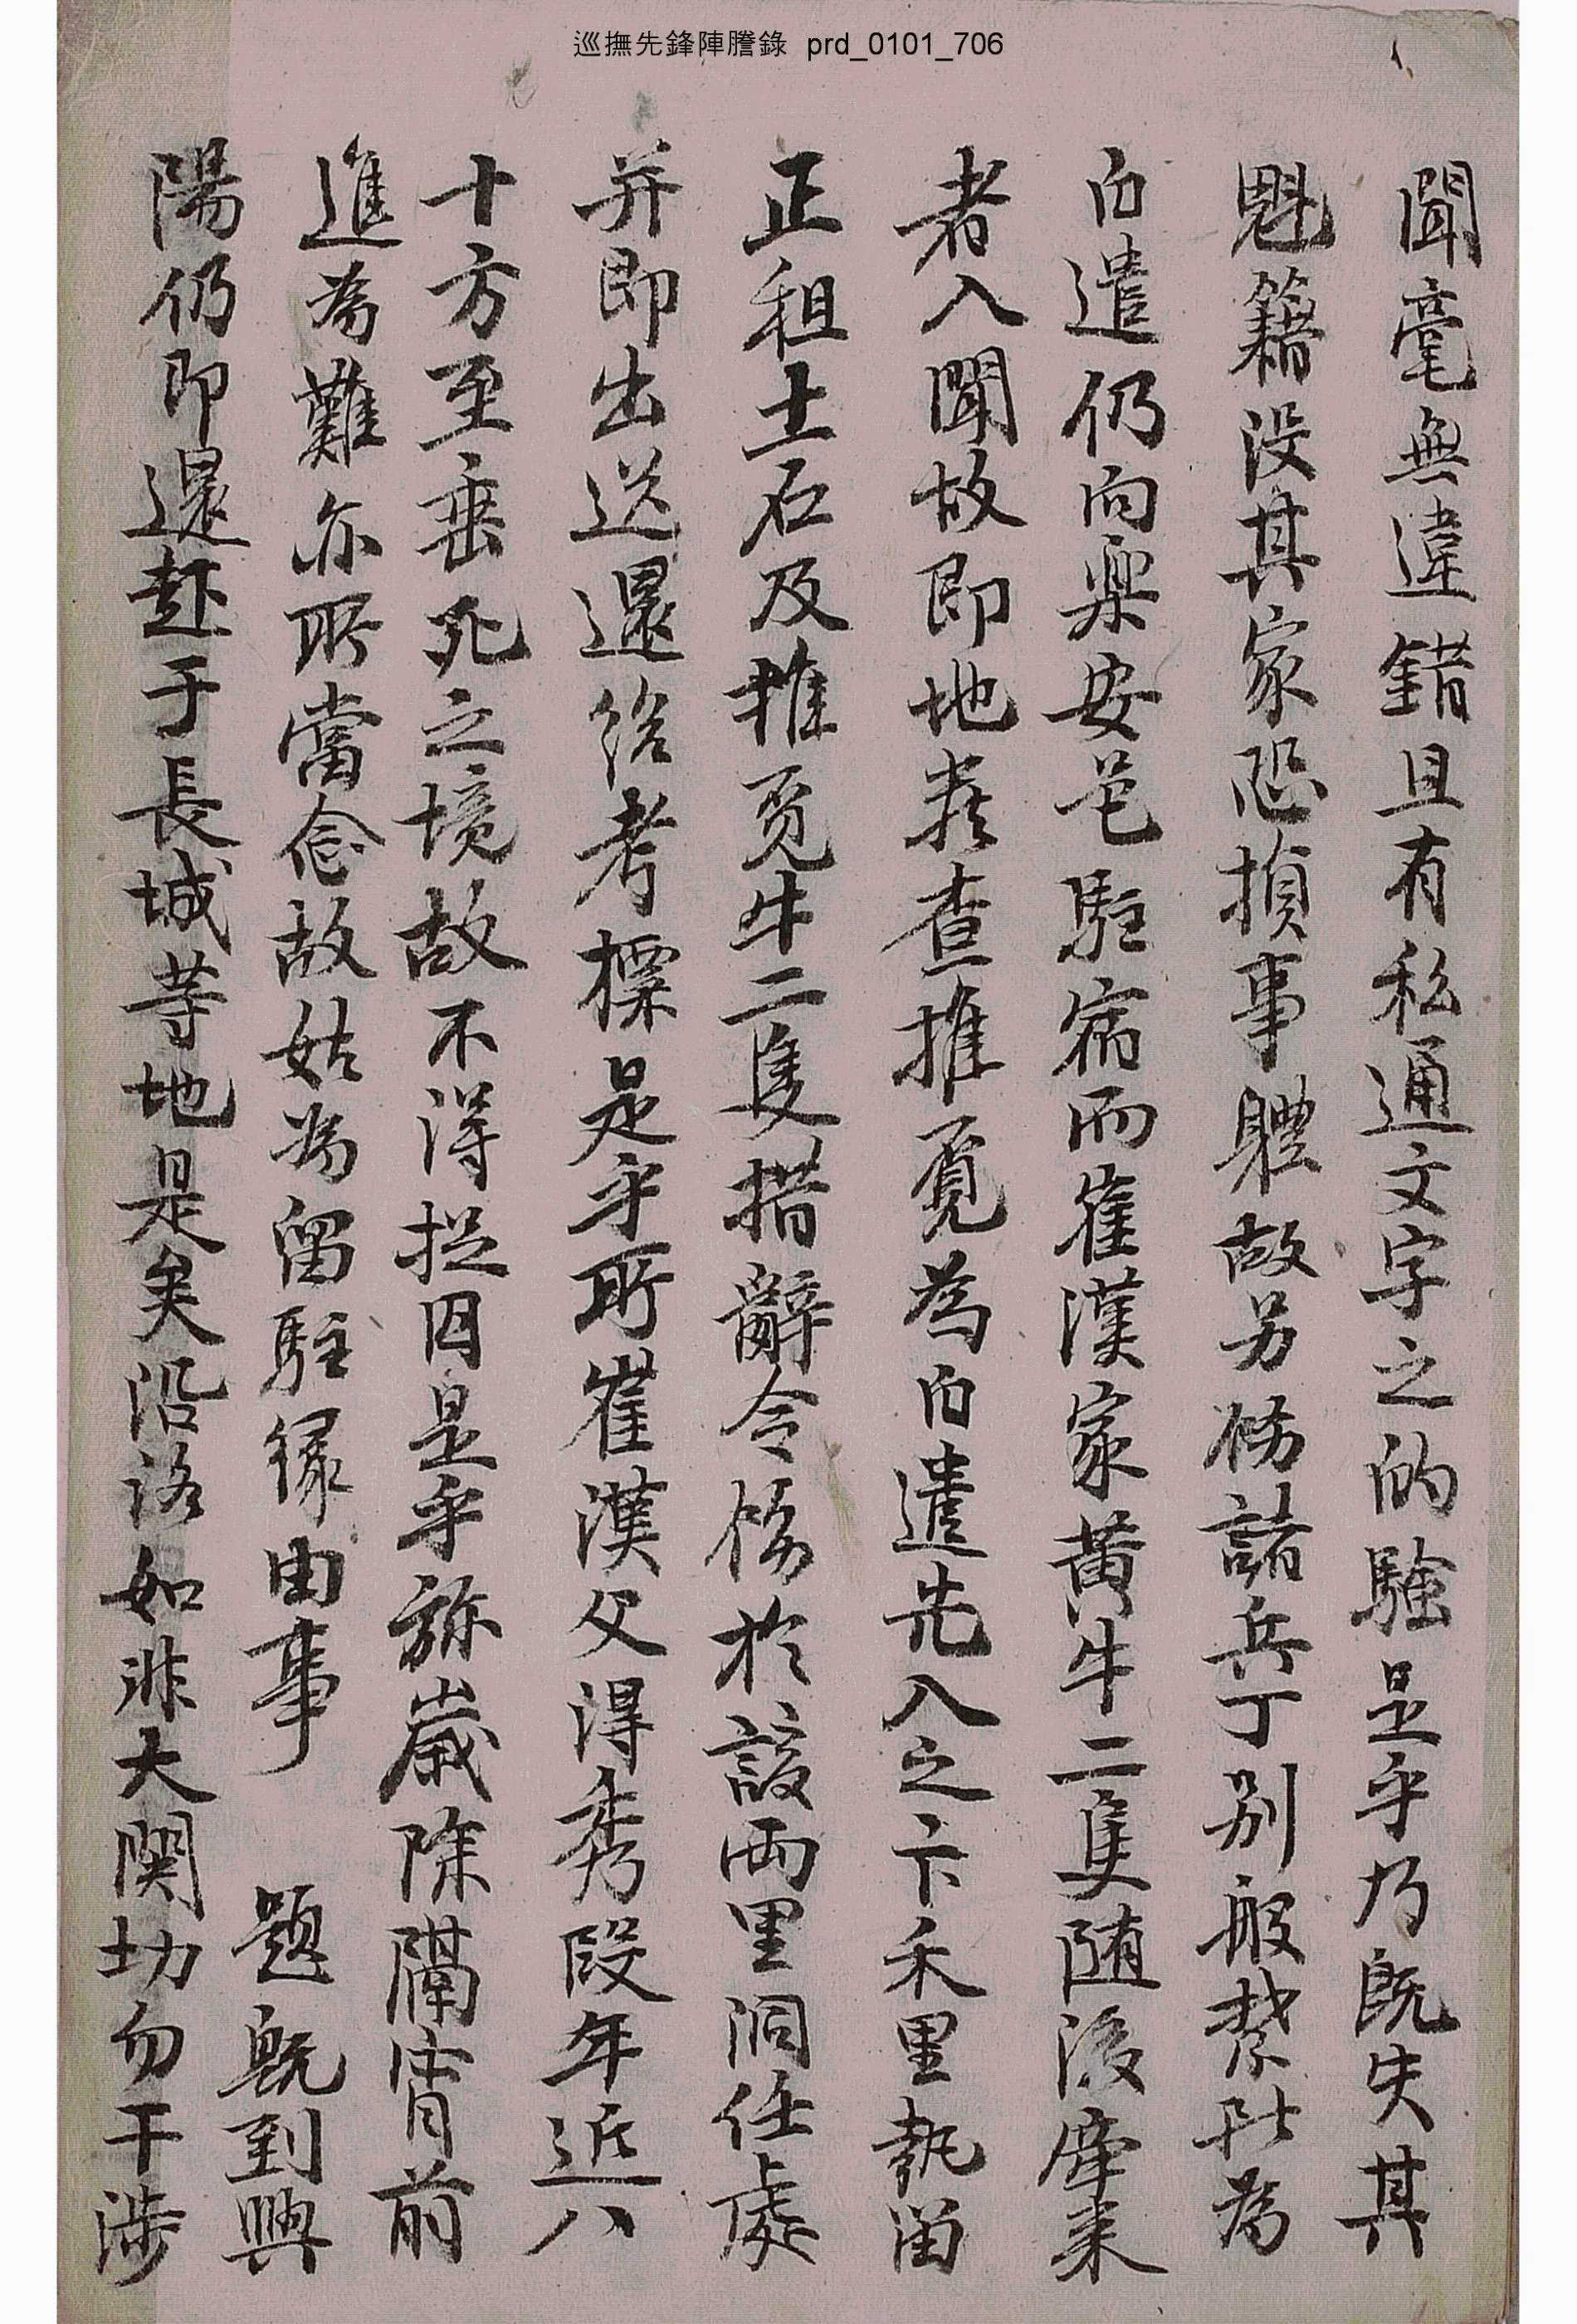 巡撫先鋒陣謄錄 prd_0101_706
聞毫無違錯且有私通文字之的驗是乎乃旣失其
魁籍没其家恐損事體故另飭諸兵丁别般禁斷爲
白遣仍向樂安邑駐宿而崔漢家黃牛二隻随後牽来
者入聞故即地嚴查推覓爲白遣先入之卞禾里執留
正租士石及推覓牛二隻措辭令飭於該両里洞任處
并即出送還給考標是乎所崔漢父得秀段年近八
十方至垂死之境故不得捉囚是乎旀歲除隔宵前
進爲難亦所當念故姑爲留駐緣由事 題旣到興
陽仍即還赴于長城等地是矣沿路如非大関切勿干涉